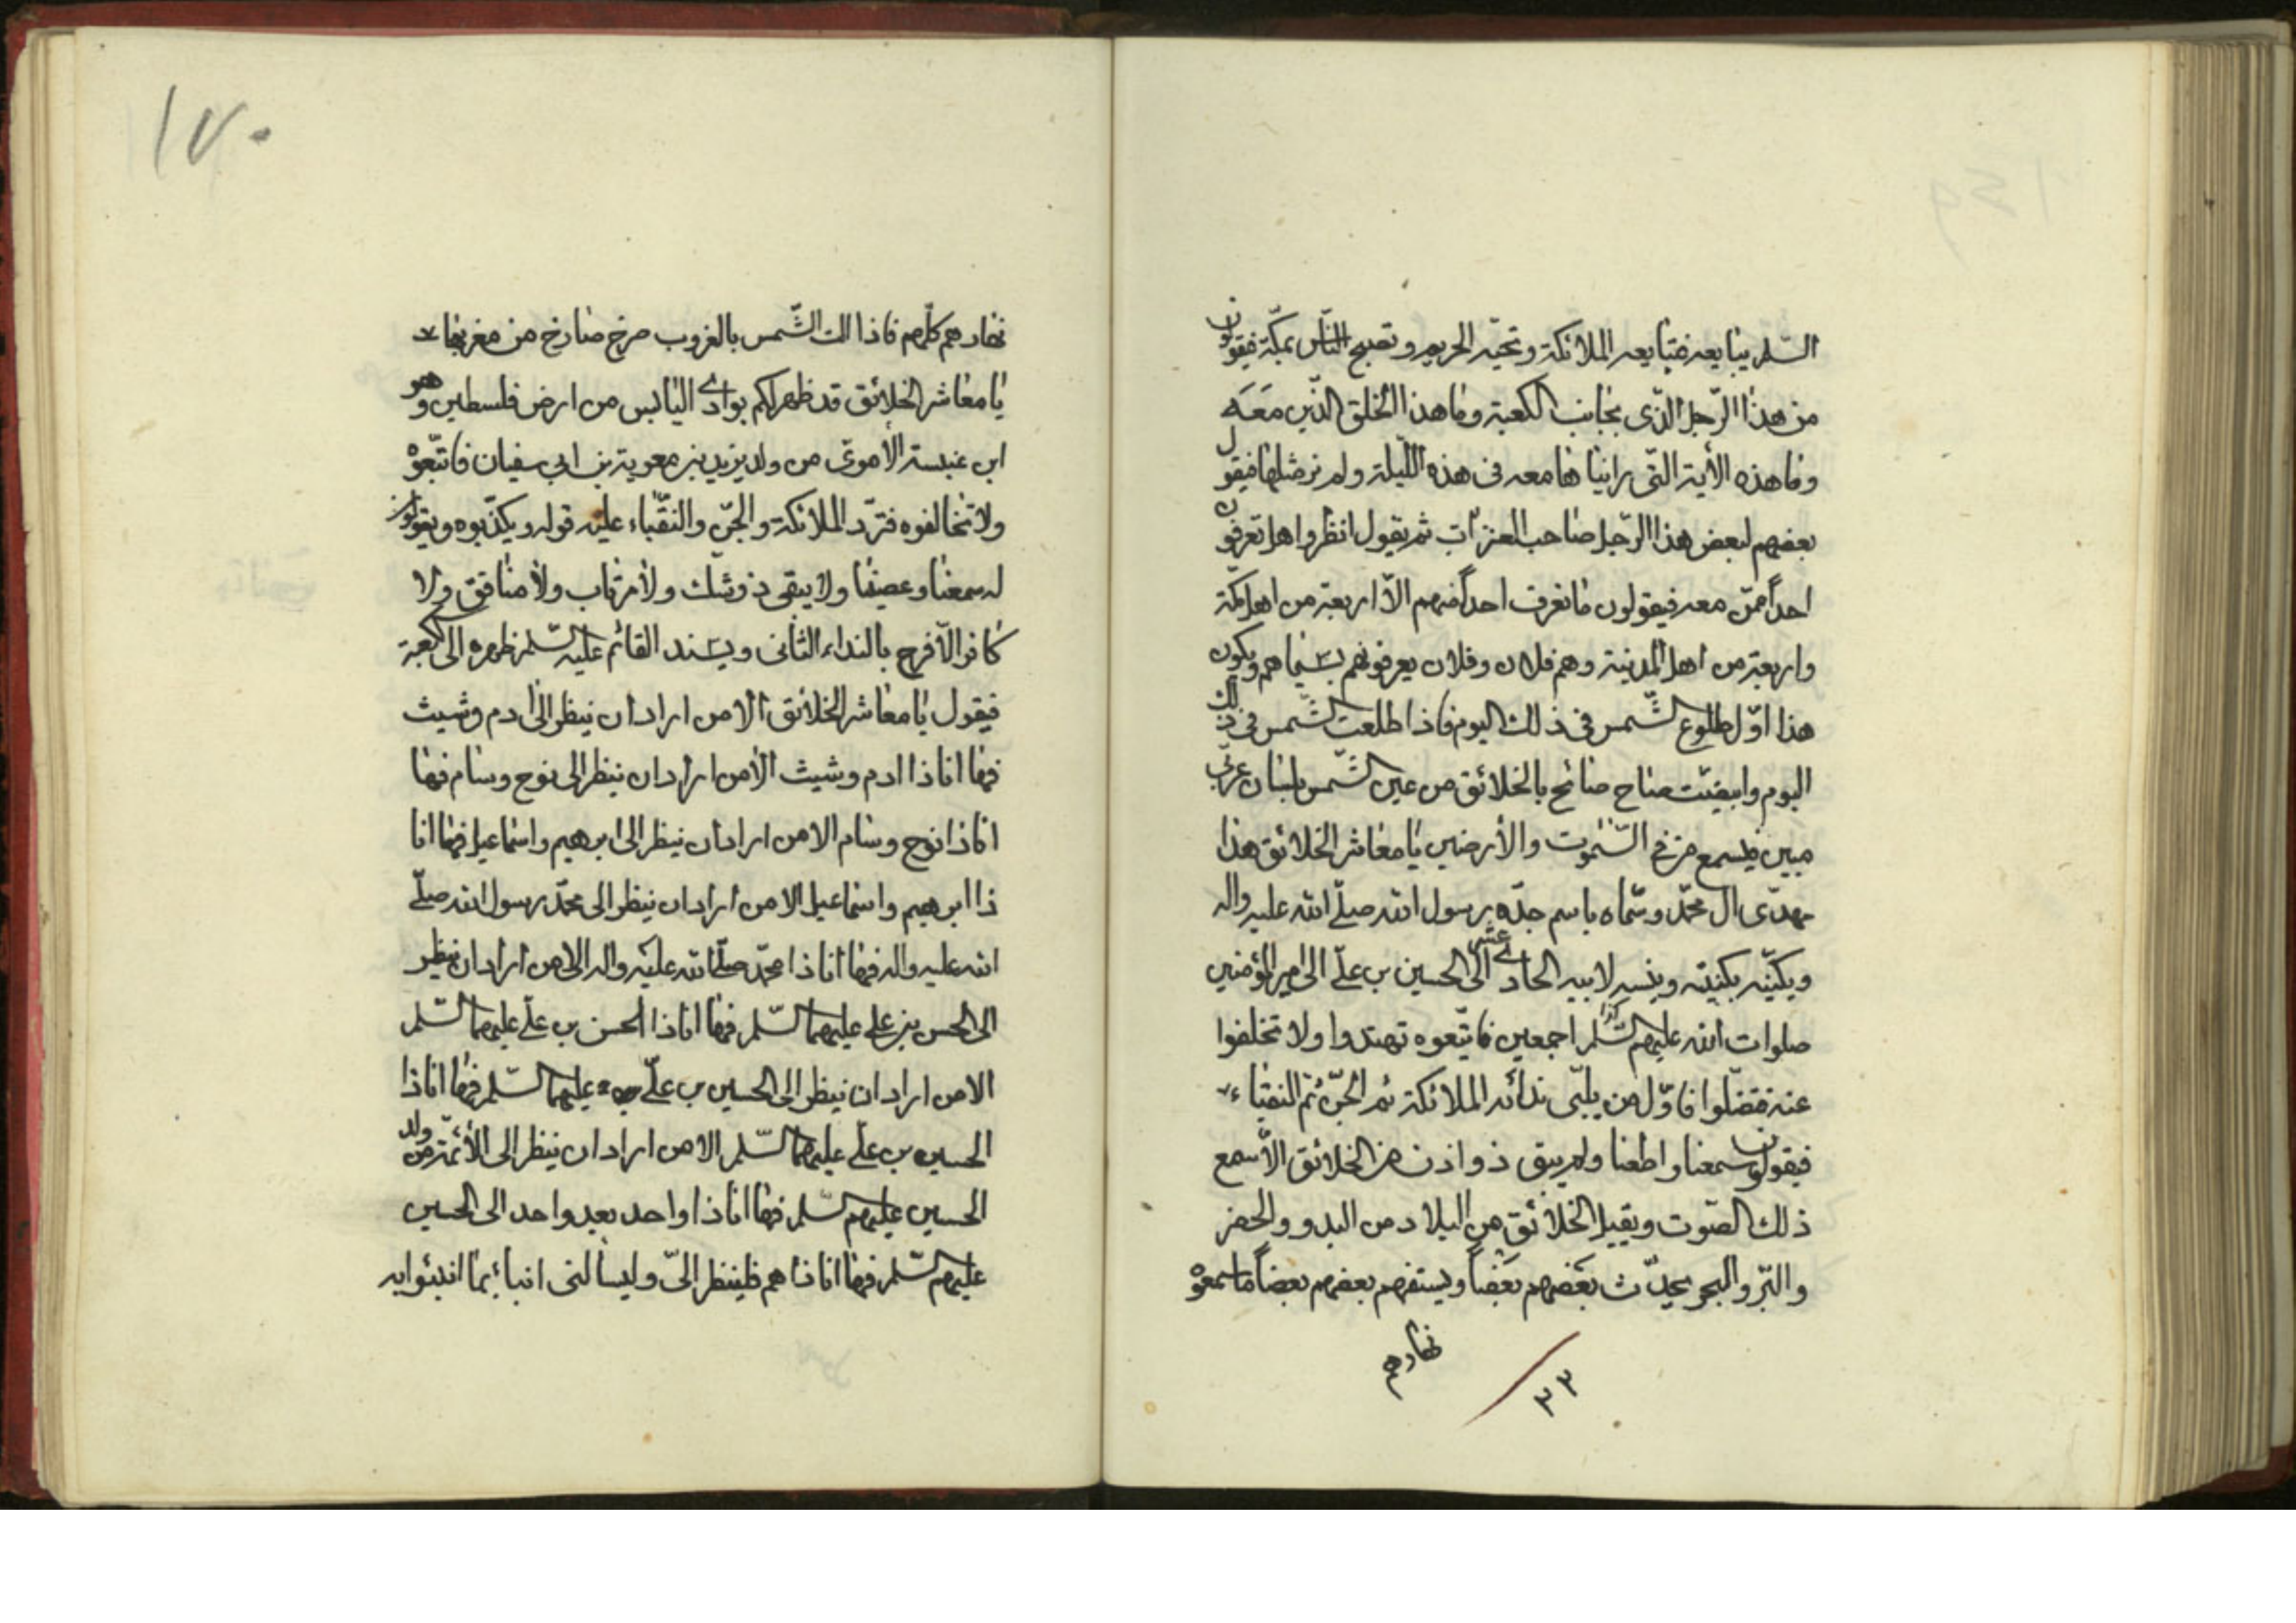 السّلم يبايعه فتبايعه الملائكة وتحيّه الحريم وتصبح النّاس بمكّة فيقولون
من هذا الرّجل الذّى بجانب الكعبة وما هذا الخلق الذّين معه
وما هذه الأية التّى رايناها معه فى هذه اللّيلة ولم نر مثلها فيقول
بعضهم لبعض هذا الرّجل صاحب العنزات ثم يقول انظروا هل تعرفون
احداً ممّن معه فيقولون ما نعرف احداً منهم الاّ اربعة من اهل مكّة
واربعة من اهل المدينة وهم فلان وفلان يعرفونهم بسيماهم ويكون
هذا اوّل طلوع الشّمس فى ذلك اليوم فاذا طلعت الشّمس فى ذلك
اليوم وابيضّت صاح صائح بالخلائق من عين الشّمس بلسان عربّى
مبين فيسمع من فى السّموت والأرضين يا معاشر الخلائق هذا
مهدّى ال محمّد وسّماه باسم جدّه رسول الله صلّى الله عليه واله
ويكنّيه بكنيته وينسبه لابيه الحادى عشر الى الحسين بن علّى الى امير المؤمنين
صلوات الله عليهم السّلم كذا اجمعين فاتّبعوه تهتدوا ولا تخلفوا
عنه فتضلّوا فاوّل من يلبّى ندائه الملائكة ثم الجّن ثم النقباء
فيقولون سمعنا واطعنا ولم يبق ذو اذن من الخلائق الاّ سمع
ذلك الصّوت ويقبل الخلائق من البلاد من البدو والحضر
والبّر والبحر يحدّث بعضهم بعضاً ويستفهم بعضهم بعضاً ما سمعوه
نهارهم
٣٣
١٧٠
نهارهم كلّهم فاذا الت الشّمس بالغروب صرخ صارخ من مغربها
يا معاشر الخلائق قد ظهر لكم بوادى اليابس من ارض فلسطين وهو
ابن عنبسة الأموىّ من ولد يزيد بن معوية بن ابى سفيان فاتّبعوه
ولا تخالفوه فتردّ الملائكة والجنّ والنقّباء عليه قوله ويكذّبوه ويقولون
له سمعنا وعصينا ولا يبقى ذو شك ولا مرتاب ولا منافق ولا
كافر الاّ فرح بالنداء الثانى ويسند القائم عليه السّلم ظهره الى الكعبة
فيقول يا معاشر الخلائق الا من اراد ان ينظر الى ادم وشيث
فها انا ذا ادم وشيث الا من اراد ان ينظر الى نوح وسام فها
انا ذا نوح وسام الا من اراد ان ينظر الى ابرهيم واسماعيل فها انا
ذا ابرهيم واسماعيل الا من اراد ان ينظر الى محمّد رسول الله صلّى
الله عليه واله فها انا ذا محمّد صلّى الله عليه واله الا من اراد ان ينظر
الى الحسن بن على عليهما السّلم فها انا ذا الحسن بن علّى عليهما السّلم
الا من اراد ان ينظر الى الحسين بن علّى عليهما السّلم فها انا ذا
الحسين بن علّى عليهما السّلم الا من اراد ان ينظر الى الأئمّة من ولد
الحسين عليهم السّلم فها انا ذا واحد بعد واحد الى الحسين
عليهم السّلم فها انا ذا هم فلينظر الىّ وليسألنى انباء بما انبئوا به